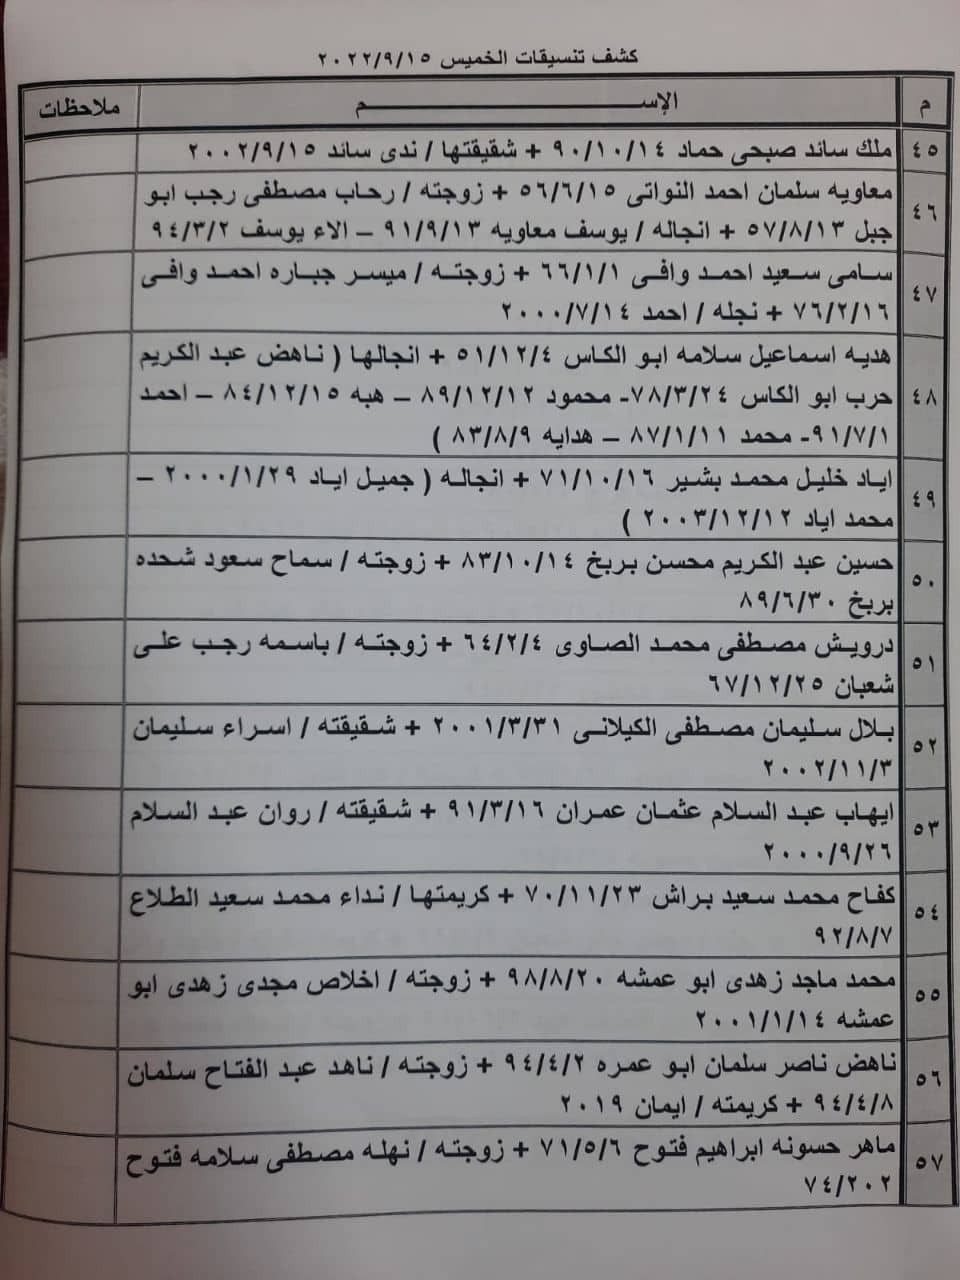 كشف تنسيقات الخميس ٢٠٢٢/٩/١٥
م الإســـــــم ملاحظات
٤٥ ملك سائد صبحى حماد ٩٠/١٠/١٤ + شقيقتها / ندى سائد ٢٠٠٢/٩/١٥
معاويه سلمان احمد النواتى ٥٦/٦/١٥ + زوجته / رحاب مصطفى رجب ابو
٤٦ جبل ٥٧/٨/١٣ + انجاله / يوسف معاويه ٩١/٩/١٣ – الاء يوسف ٩٤/٣/٢
سامى سعيد احمد وافى ٦٦/١/١ + زوجته / ميسر جباره احمد وافى
٤٧ ٧٦/٢/١٦ + نجله / احمد ٢٠٠٠/٧/١٤
هديه اسماعيل سلامه ابو الكاس ٥١/١٢/٤ + انجالها ( ناهض عبد الكريم
٤٨ حرب ابو الكاس ٧٨/٣/٢٤- محمود ٨٩/١٢/١٢ – هبه ٨٤/١٢/١٥ – احمد
٩١/٧/١- محمد ٨٧/١/١١ – هدايه ٨٣/٨/٩ )
اياد خليل محمد بشير ٧١/١٠/١٦ + انجاله ( جميل اياد ٢٠٠٠/١/٢٩ –
٤٩ محمد اياد ٢٠٠٣/١٢/١٢ )
حسين عبد الكريم محسن بربخ ٨٣/١٠/١٤ + زوجته / سماح سعود شحده
٥٠ بربخ ٨٩/٦/٣٠
درويش مصطفى محمد الصاوى ٦٤/٢/٤ + زوجته / باسمه رجب على
٥١ شعبان ٦٧/١٢/٢٥
بلال سليمان مصطفى الكيلانى ٢٠٠١/٣/٣١ + شقيقته / اسراء سليمان
٥٢ ٢٠٠٢/١١/٣
ايهاب عبد السلام عثمان عمران ٩١/٣/١٦ + شقيقته / روان عبد السلام
٥٣ ٢٠٠٠/٩/٢٦
كفاح محمد سعيد براش ٧٠/١١/٢٣ + كريمتها / نداء محمد سعيد الطلاع
٥٤ ٩٢/٨/٧
محمد ماجد زهدى ابو عمشه ٩٨/٨/٢٠ + زوجته / اخلاص مجدى زهدى ابو
٥٥ عمشه ٢٠٠١/١/١٤
ناهض ناصر سلمان ابو عمره ٩٤/٤/٢ + زوجته / ناهد عبد الفتاح سلمان
٥٦ ٩٤/٤/٨ + كريمته / ايمان ٢٠١٩
ماهر حسونه ابراهيم فتوح ٧١/٥/٦ + زوجته / نهله مصطفى سلامه فتوح
٥٧ ٧٤/٢٠٢